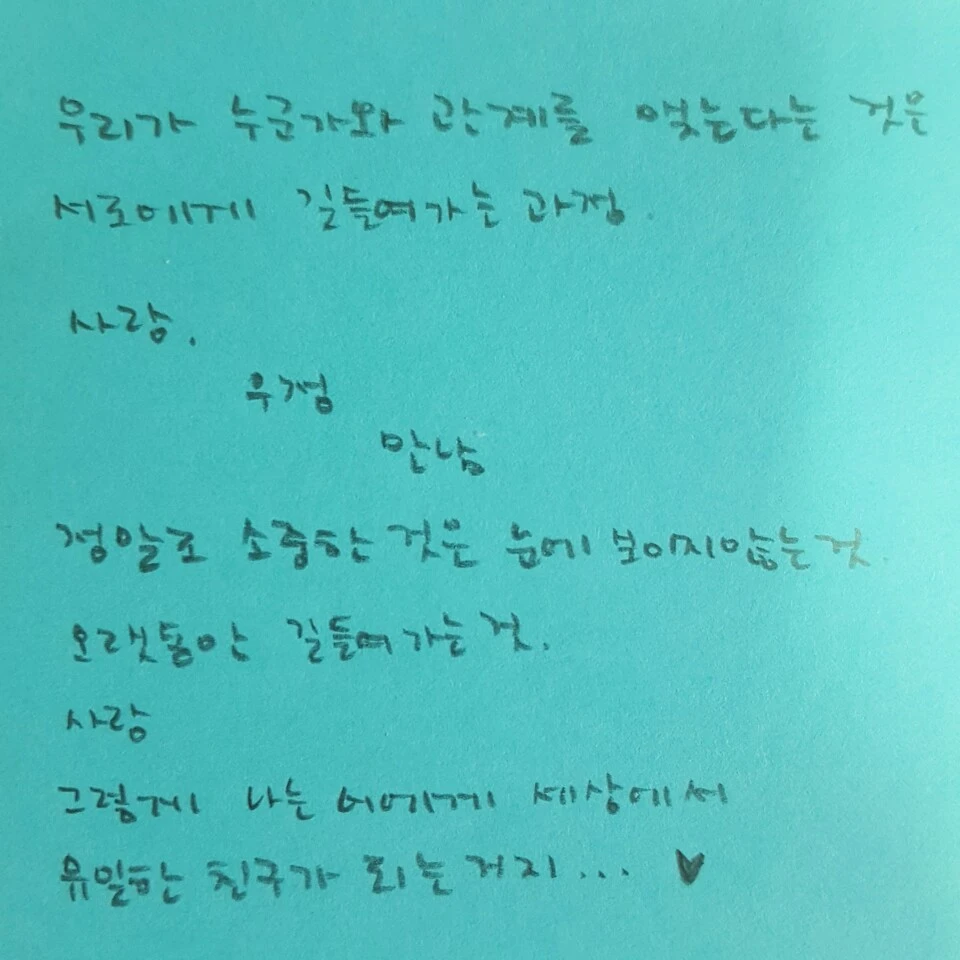 우리가 누군가와 관계를 맺는다는 것은
서로에게 길들여가는 과정.
사랑.
우정
만남
정말로 소중한 것은 눈에 보이지않는것.
오랫동안 길들여가는것.
사랑
그렇게 나는 너에게 세상에서
유일한 친구가 되는거지... ♥